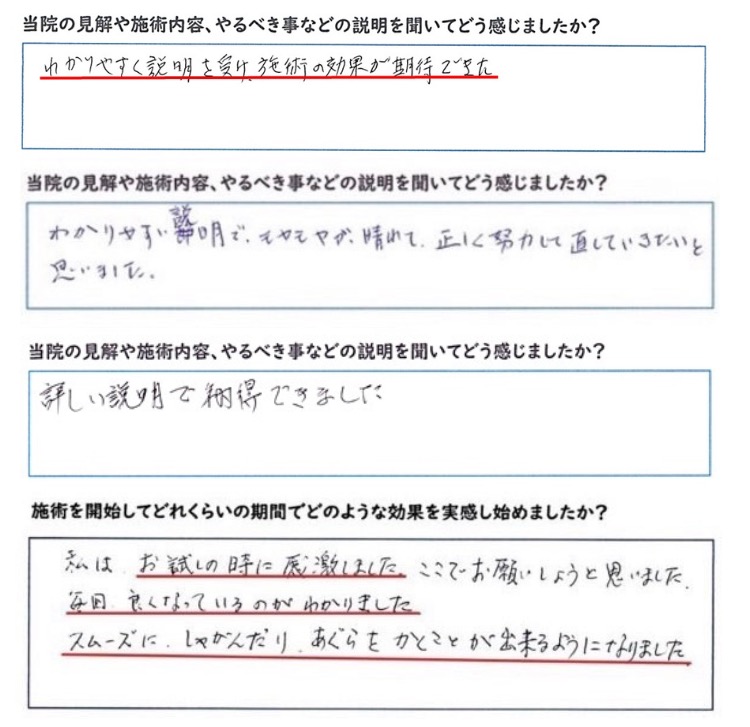 当院の見解や施術内容、やるべき事などの説明を聞いてどう感じましたか?
わかりやすく説明を受け、施術の効果が期待できた
当院の見解や施術内容、やるべき事などの説明を聞いてどう感じましたか?
わかりやすい説明で、モヤモヤが、晴れて、正しく努力して直していきたいと
思いました。
当院の見解や施術内容、やるべき事などの説明を聞いてどう感じましたか?
詳しい説明で納得できました
施術を開始してどれくらいの期間でどのような効果を実感し始めましたか?
私は、お試しの時に感激しました。ここでお願いしようと思いました。
毎回、良くなっているのがわかりました
スムーズに、しゃがんだり、あぐらをかくことが出来るようになりました